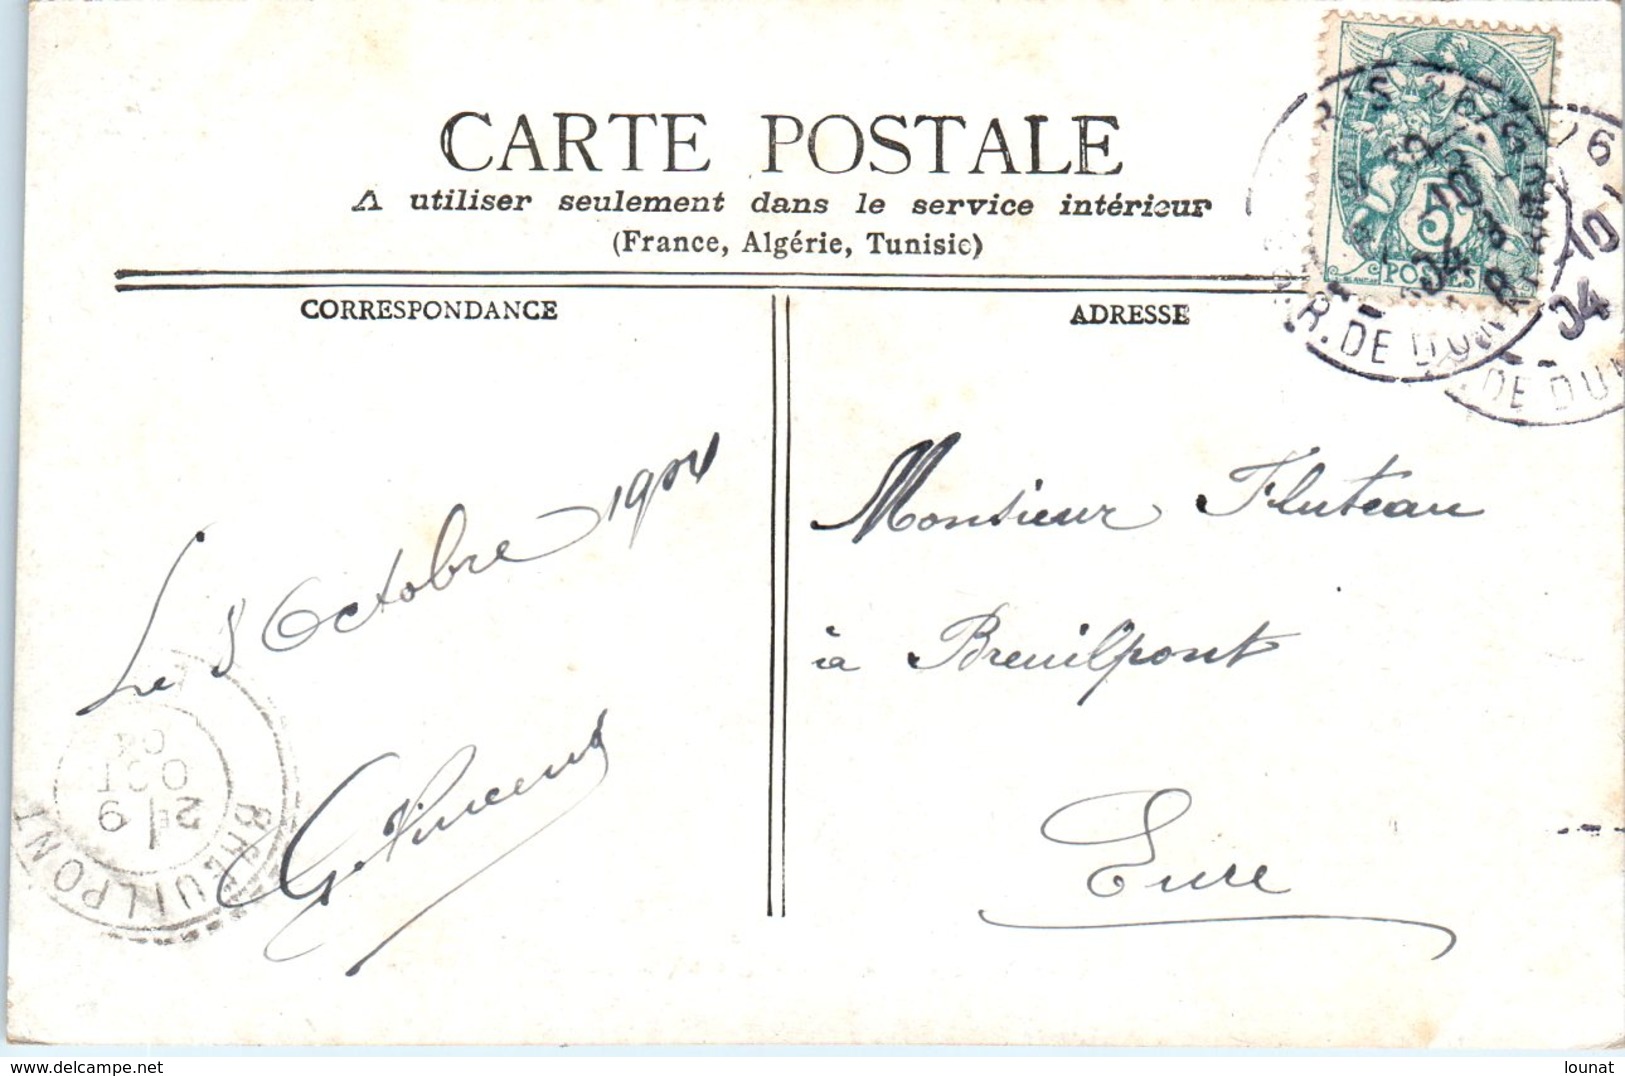 CARTE POSTALE
A utiliser seulement dans le service intérieur
(France, Algérie, Tunisie)
CORRESPONDANCE
ADRESSE
POSTES
5
R. DE DUN
DE DU
10
04
Le 8 Octobre 1904
G. Vincent
Monsieur Fluteau
à Breuilpont
Eure
BREUILPONT
2E 9
OCT
04
www.delcampe.net
lounat